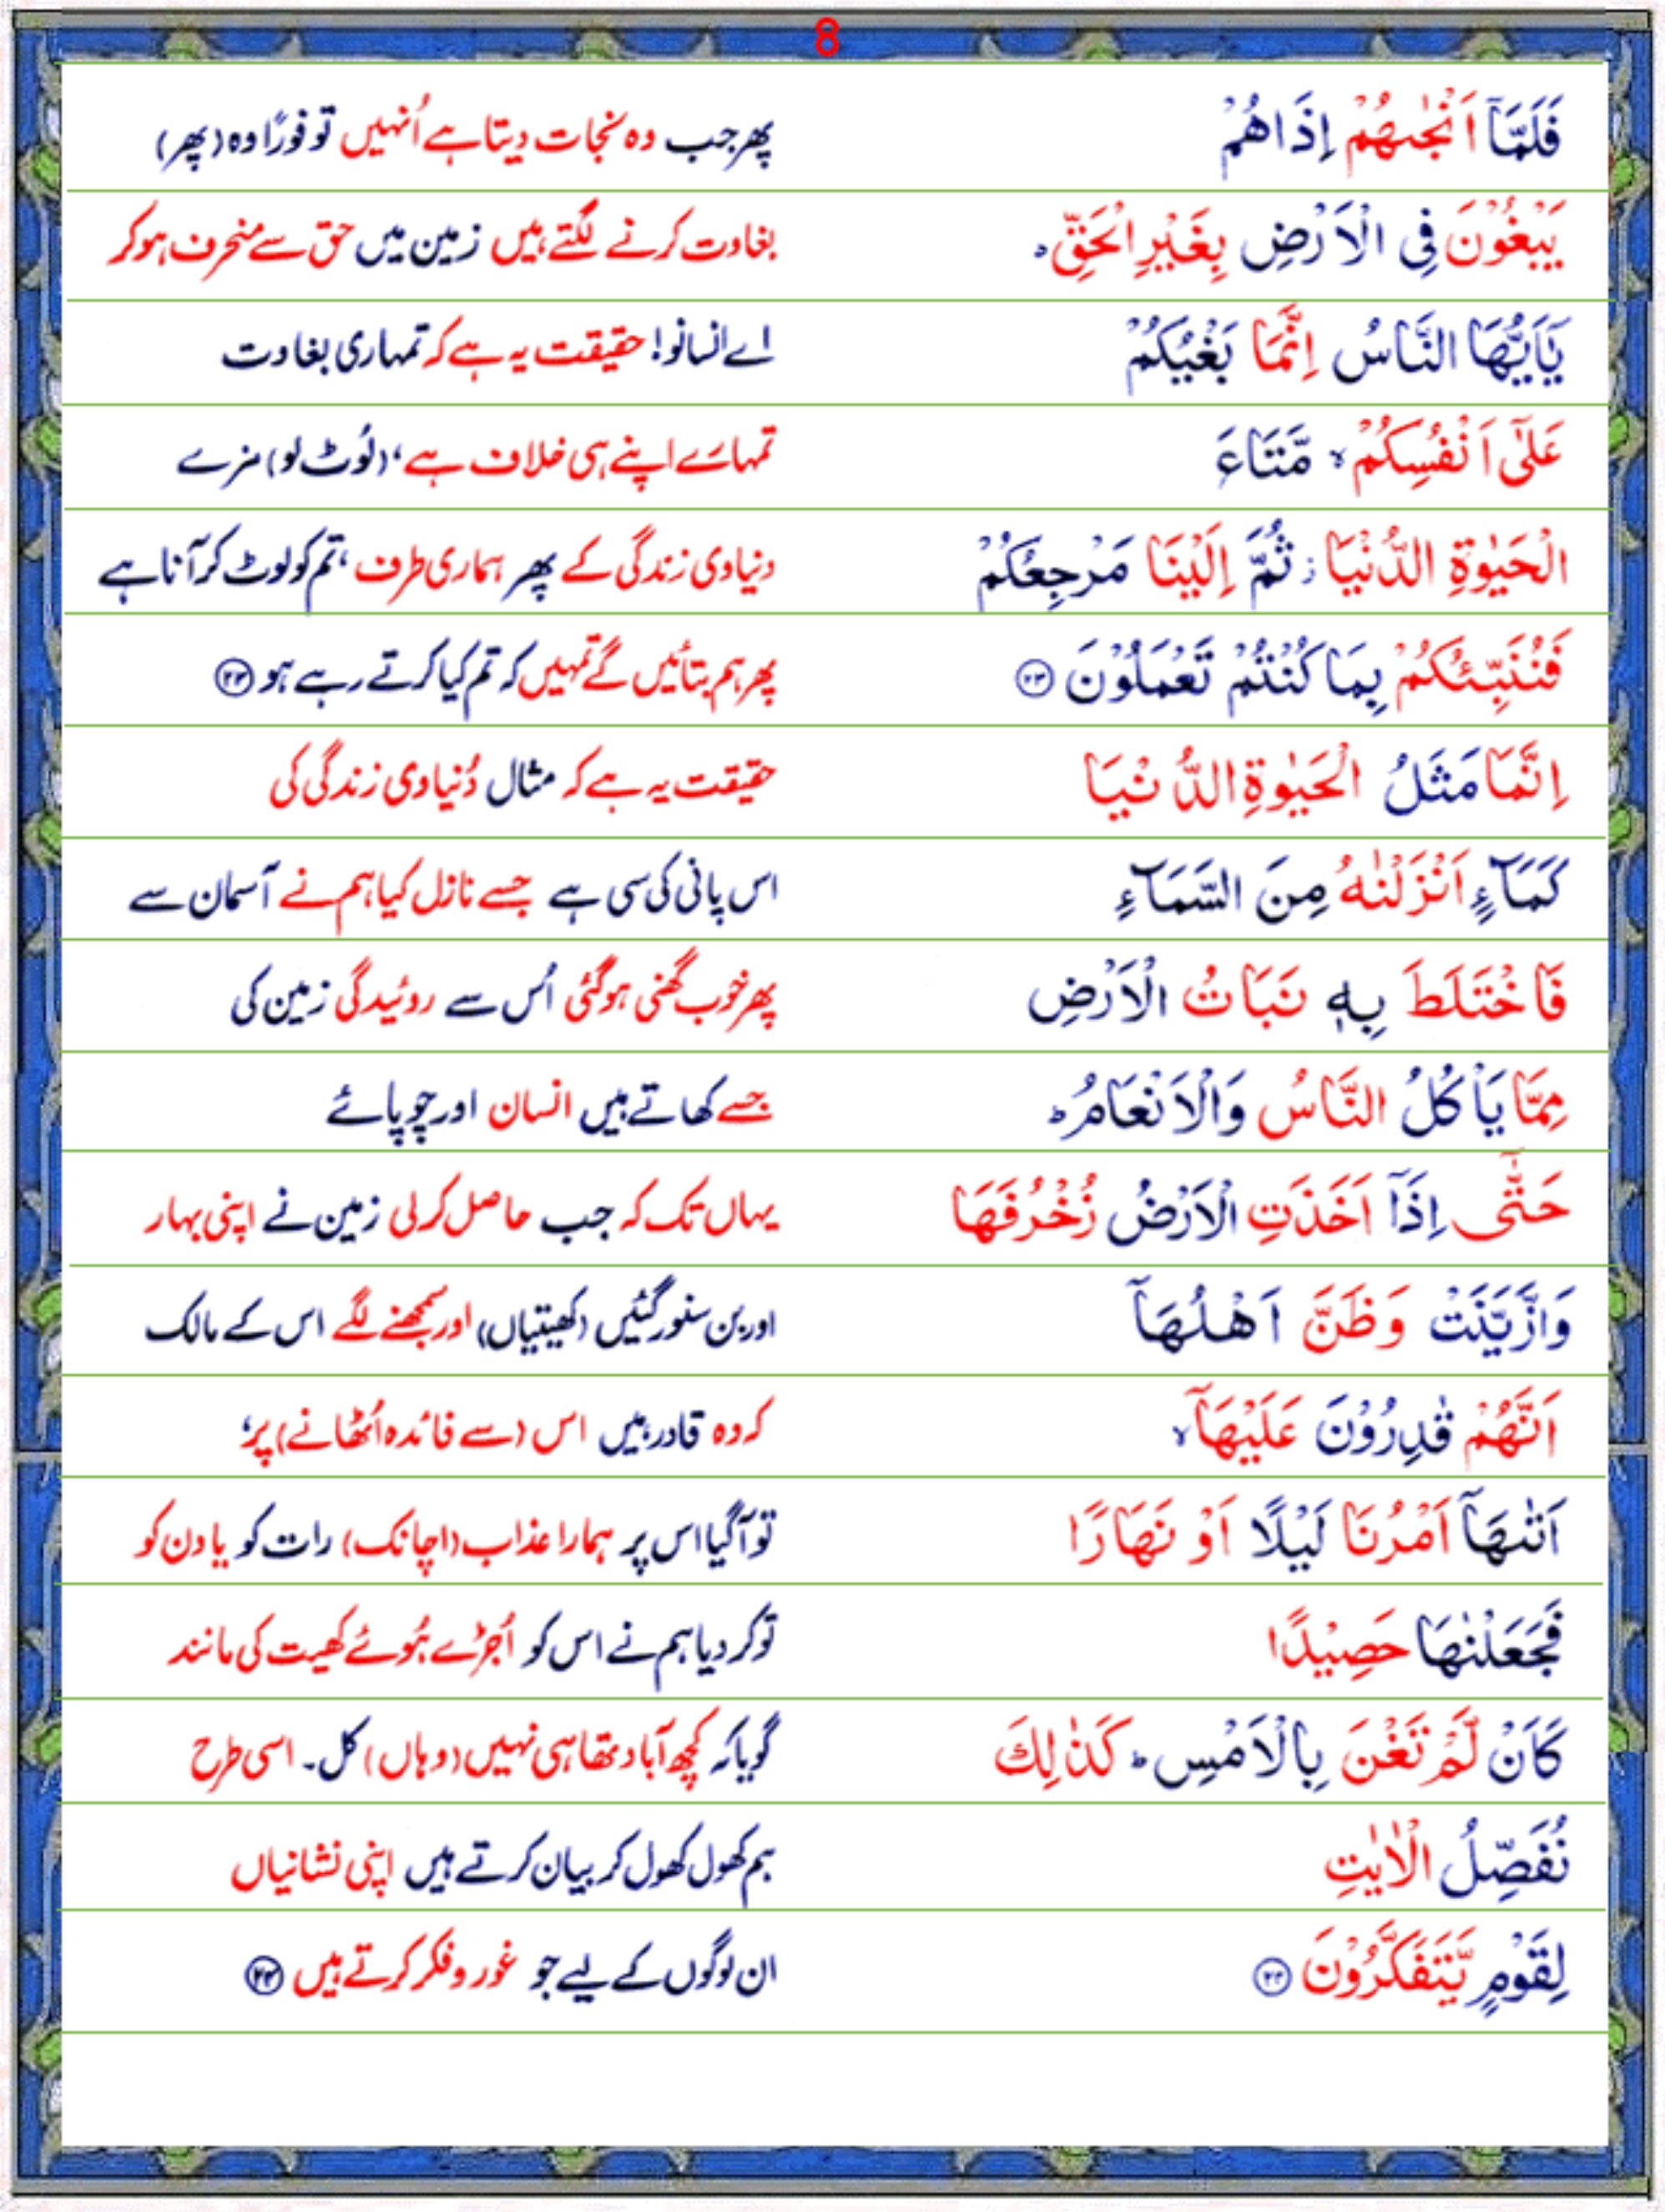 8
فَلَمَّآ اَنْجٰىهُمْ اِذَاهُمْ پھر جب وہ نجات دیتا ہے اُنہیں تو فورًا وہ (پھر)
يَبْغُوْنَ فِى الْاَرْضِ بِغَيْرِ الْحَقِّ ؕ بغاوت کرنے لگتے ہیں زمین میں حق سے منحرف ہو کر
يٰۤاَيُّهَا النَّاسُ اِنَّمَا بَغْيُكُمْ اے انسانو! حقیقت یہ ہے کہ تمہاری بغاوت
عَلٰٓى اَنْفُسِكُمْ ۙ مَّتَاعَ تمہارے اپنے ہی خلاف ہے، (لُوٹ لو) مزے
الْحَيٰوةِ الدُّنْيَا ز ثُمَّ اِلَيْنَا مَرْجِعُكُمْ دنیاوی زندگی کے پھر ہماری طرف، تم کو لوٹ کر آنا ہے
فَنُنَبِّئُكُمْ بِمَا كُنْتُمْ تَعْمَلُوْنَ ﴿۲۳﴾ پھر ہم بتائیں گے تمہیں کہ تم کیا کرتے رہے ہو ﴿۲۳﴾
اِنَّمَا مَثَلُ الْحَيٰوةِ الدُّنْيَا حقیقت یہ ہے کہ مثال دُنیاوی زندگی کی
كَمَآءٍ اَنْزَلْنٰهُ مِنَ السَّمَآءِ اس پانی کی سی ہے جسے نازل کیا ہم نے آسمان سے
فَاخْتَلَطَ بِهٖ نَبَاتُ الْاَرْضِ پھر خوب گھنی ہوگئی اُس سے روئیدگی زمین کی
مِمَّا يَاْكُلُ النَّاسُ وَالْاَنْعَامُ ؕ جسے کھاتے ہیں انسان اور چوپائے
حَتّٰٓى اِذَآ اَخَذَتِ الْاَرْضُ زُخْرُفَهَا یہاں تک کہ جب حاصل کرلی زمین نے اپنی بہار
وَازَّيَّنَتْ وَظَنَّ اَهْلُهَآ اور بن سنور گئیں (کھیتیاں) اور سمجھنے لگے اس کے مالک
اَنَّهُمْ قٰدِرُوْنَ عَلَيْهَآ ۙ کہ وہ قادر ہیں اس (سے فائدہ اُٹھانے) پر،
اَتٰىهَآ اَمْرُنَا لَيْلًا اَوْ نَهَارًا تو آگیا اس پر ہمارا عذاب (اچانک) رات کو یا دن کو
فَجَعَلْنٰهَا حَصِيْدًا تو کر دیا ہم نے اس کو اُجڑے ہُوئے کھیت کی مانند
كَاَنْ لَّمْ تَغْنَ بِالْاَمْسِ ؕ كَذٰلِكَ گویا کہ کچھ آباد تھا ہی نہیں (وہاں) کل۔ اسی طرح
نُفَصِّلُ الْاٰيٰتِ ہم کھول کھول کر بیان کرتے ہیں اپنی نشانیاں
لِقَوْمٍ يَّتَفَكَّرُوْنَ ﴿۲۴﴾ ان لوگوں کے لیے جو غور و فکر کرتے ہیں ﴿۲۴﴾